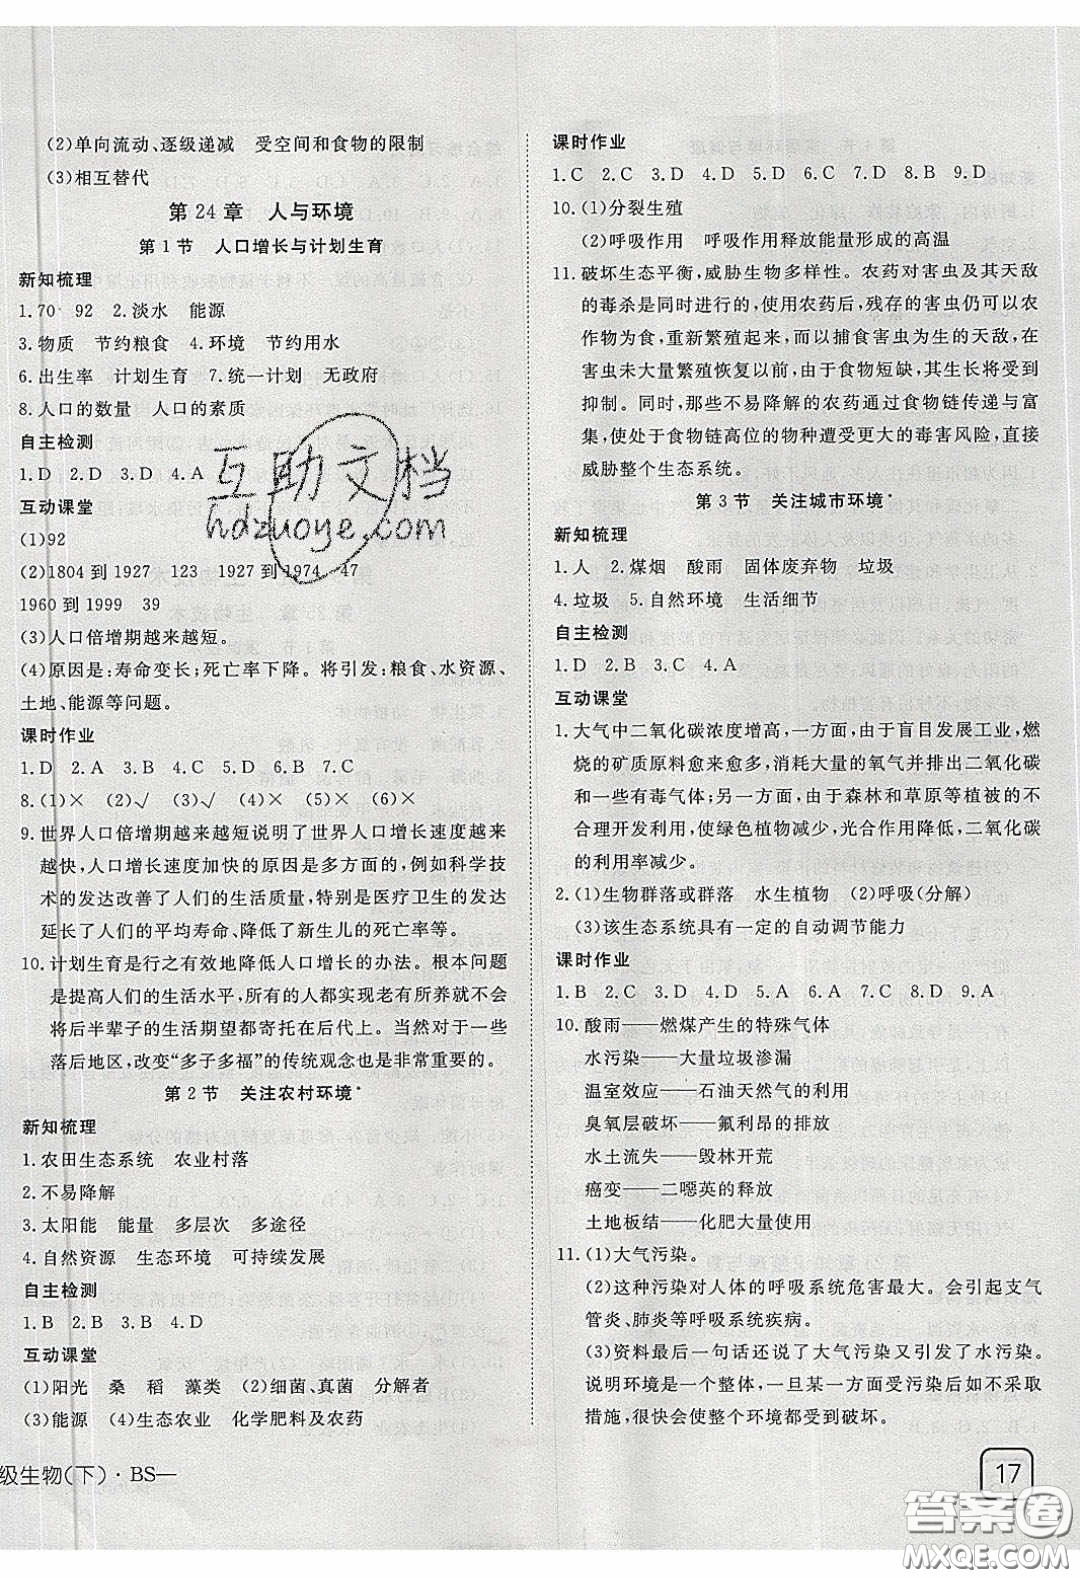 (2)单向流动、逐级递减　受空间和食物的限制
(3)相互替代
第24章　人与环境
第1节　人口增长与计划生育
新知梳理
1.70　92　2.淡水　能源
3.物质　节约粮食　4.环境　节约用水
6.出生率　计划生育　7.统一计划　无政府
8.人口的数量　人口的素质
自主检测
1.D　2.D　3.D　4.A
互动课堂
(1)92
(2)1804 到 1927　123　1927 到 1974　47
1960 到 1999　39
(3)人口倍增期越来越短。
(4)原因是:寿命变长;死亡率下降。将引发:粮食、水资源、
土地、能源等问题。
课时作业
1.D　2.A　3.B　4.C　5.D　6.B　7.C
8.(1)×　(2)√　(3)√　(4)×　(5)×　(6)×
9.世界人口倍增期越来越短说明了世界人口增长速度越来
越快,人口增长速度加快的原因是多方面的,例如科学技
术的发达改善了人们的生活质量,特别是医疗卫生的发达,
延长了人们的平均寿命、降低了新生儿的死亡率等。
10.计划生育是行之有效地降低人口增长的办法。根本问题
是提高人们的生活水平,所有的人都实现老有所养,就不会
将后半辈子的生活期望都寄托在后代上。当然对于一些
落后地区,改变“多子多福”的传统观念也是非常重要的。
第2节　关注农村环境*
新知梳理
1.农田生态系统　农业村落
2.不易降解
3.太阳能　能量　多层次　多途径
4.自然资源　生态环境　可持续发展
自主检测
1.B　2.B　3.B　4.D
互动课堂
(1)阳光　桑　稻　藻类　(2)细菌、真菌　分解者
(3)能源　(4)生态农业　化学肥料及农药
级生物(下)·BS—
课时作业
1.C　2.C　3.D　4.C　5.D　6.C　7.D　8.B　9.D
10.(1)分裂生殖
(2)呼吸作用　呼吸作用释放能量形成的高温
11.破坏生态平衡,威胁生物多样性。农药对害虫及其天敌
的毒杀是同时进行的,使用农药后,残存的害虫仍可以农
作物为食,重新繁殖起来,而以捕食害虫为生的天敌,在
害虫未大量繁殖恢复以前,由于食物短缺,其生长将受到
抑制。同时,那些不易降解的农药通过食物链传递与富
集,使处于食物链高位的物种遭受更大的毒害风险,直接
威胁整个生态系统。
第3节　关注城市环境*
新知梳理
1.人　2.煤烟　酸雨　固体废弃物　垃圾
4.垃圾　5.自然环境　生活细节
自主检测
1.D　2.B　3.C　4.A
互动课堂
1.大气中二氧化碳浓度增高,一方面,由于盲目发展工业,燃
烧的矿质原料愈来愈多,消耗大量的氧气并排出二氧化碳
和一些有毒气体;另一方面,由于森林和草原等植被的不
合理开发利用,使绿色植物减少,光合作用降低,二氧化碳
的利用率减少。
2.(1)生物群落或群落　水生植物　(2)呼吸(分解)
(3)该生态系统具有一定的自动调节能力
课时作业
1.B　2.C　3.D　4.D　5.A　6.A　7.D　8.D　9.A
10.酸雨——燃煤产生的特殊气体
水污染——大量垃圾渗漏
温室效应——石油天然气的利用
臭氧层破坏——氟利昂的排放
水土流失——毁林开荒
癌变——二噁英的释放
土地板结——化肥大量使用
11.(1)大气污染。
(2)这种污染对人体的呼吸系统危害最大。会引起支气
管炎、肺炎等呼吸系统疾病。
(3)资料最后一句话还说了大气污染又引发了水污染。
说明环境是一个整体,一旦某一方面受污染后如不采取
措施,很快会使整个环境都受到破坏。
17
互助文档
hdzuoye.com
答案圈
MXQE.COM